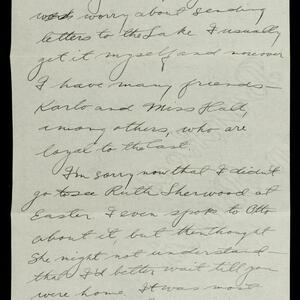 worry about sending
letters to the Lake. I usually
get it myself and moreover
I have many friends—
Karlo and Miss Halt,
among others, who are
loyal to the last.
I'm sorry now that I didn't
go to see Ruth Sherwood at
Easter. I even spok to Otto
about it, but then thought
she might not understand—
that I'd better wait till you
were home. It was most